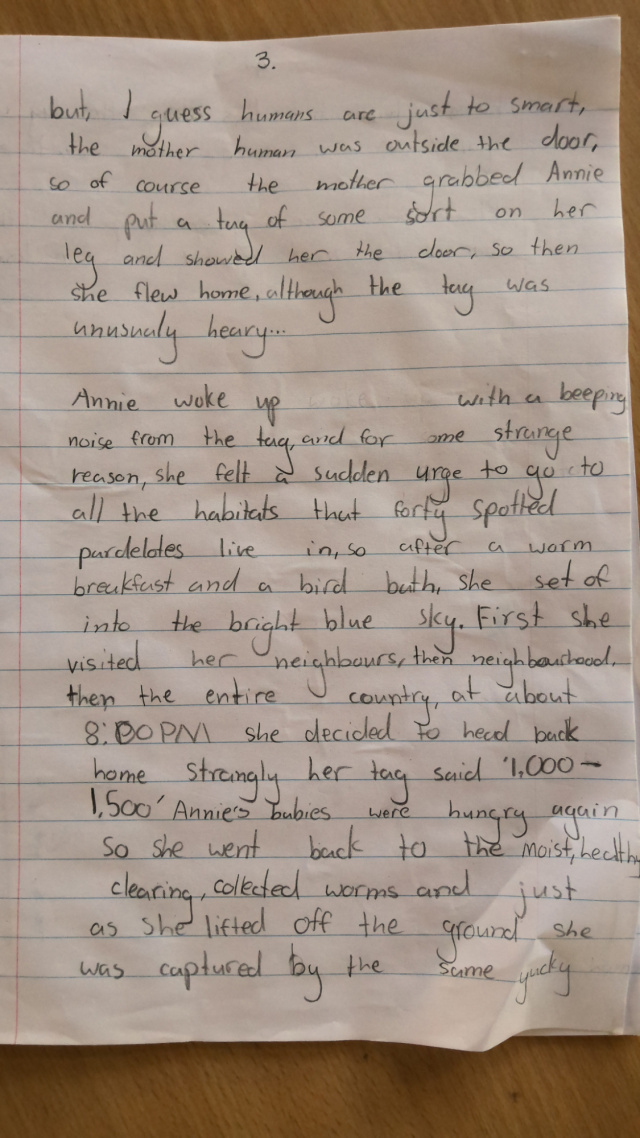 3.
but, I guess humans are just to smart,
the mother human was outside the door,
so of course the mother grabbed Annie
and put a tag of some sort on her
leg and showed her the door, so then
she flew home, although the tag was
unusualy heavy...
Annie woke up with a beeping
noise from the tag, and for ome strange
reason, she felt a sudden urge to go to
all the habitats that forty spotted
pardelotes live in, so after a worm
breakfast and a bird bath, she set of
into the bright blue sky. First she
visited her neighbours, then neighbourhood,
then the entire country, at about
8:00PM she decided to head back
home Strangly her tag said '1,000-
1,500' Annie's babies were hungry again
so she went back to the moist, healthy
clearing, collected worms and just
as she lifted off the ground she
was captured by the same yucky